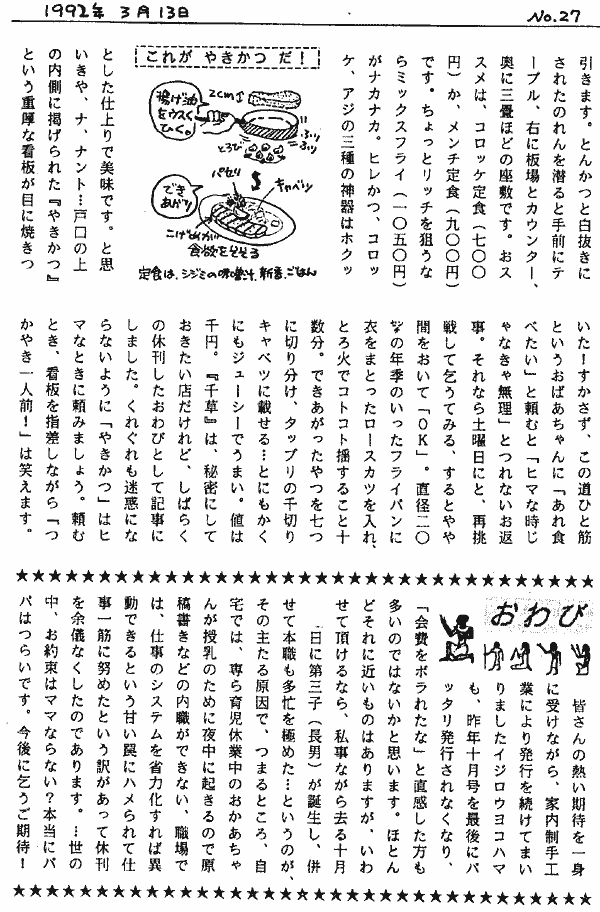 1992年 3月13日
No.27
引きます。とんかつと白抜きに
されたのれんを潜ると手前にテ
ーブル、右に板場とカウンター、
奥に三畳ほどの座敷です。おス
スメは、コロッケ定食(七〇〇
円)か、メンチ定食(九〇〇円)
です。ちょっとリッチを狙うな
らミックスフライ(一〇五〇円)
がナカナカ。ヒレかつ、コロッ
ケ、アジの三種の神器はホクッ
これが やきかつ だ!
揚げ油
をウスく
ひく。
2cm
ぶッ
ぶッ
とろび
パセリ
キャベツ
でき
あがり
こげめがカ
食欲をそそる
定食は、シジミの味噌汁、新香、ごはん
とした仕上りで美味です。と思
いきや、ナ、ナント…戸口の上
の内側に掲げられた『やきかつ』
という重厚な看板が目に焼きつ
いた!すかさず、この道ひと筋
というおばあちゃんに「あれ食
べたい」と頼むと「ヒマな時じ
ゃなきゃ無理」とつれないお返
事。それなら土曜日にと、再挑
戦して乞うてみる、するとやや
間をおいて「OK」。直径二〇
㌢の年季のいったフライパンに
衣をまとったロースカツを入れ、
とろ火でコトコト揺すること十
数分。できあがったやつを七つ
に切り分け、タップリの千切り
キャベツに載せる…とにもかく
にもジューシーでうまい。値は
千円。『千草』は、秘密にして
おきたい店だけれど、しばらく
の休刊したおわびとして記事に
しました。くれぐれも迷惑にな
らないように「やきかつ」はヒ
マなときに頼みましょう。頼む
とき、看板を指差しながら「つ
かやき一人前!」は笑えます。
おわび
皆さんの熱い期待を一身
に受けながら、家内制手工
業により発行を続けてまい
りましたイジロウヨコハマ
も、昨年十月号を最後にパ
ッタリ発行されなくなり、
「会費をボラれたな」と直感した方も
多いのではないかと思います。ほとん
どそれに近いものはありますが、いわ
せて頂けるなら、私事ながら去る十月
一日に第三子(長男)が誕生し、併
せて本職も多忙を極めた…というのが、
その主たる原因で、つまるところ、自
宅では、専ら育児休業中のおかあちゃ
んが授乳のために夜中に起きるので原
稿書きなどの内職ができない、職場で
は、仕事のシステムを省力化すれば異
動できるという甘い罠にハメられて仕
事一筋に努めたという訳があって休刊
を余儀なくしたのであります。…世の
中、お約束はママならない?本当にパ
パはつらいです。今後に乞うご期待!